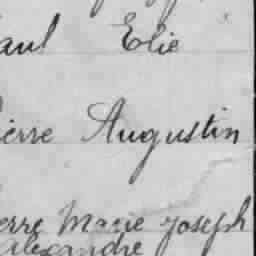 aul Elie
ierre Augustin
erre Marie Joseph
alexandre